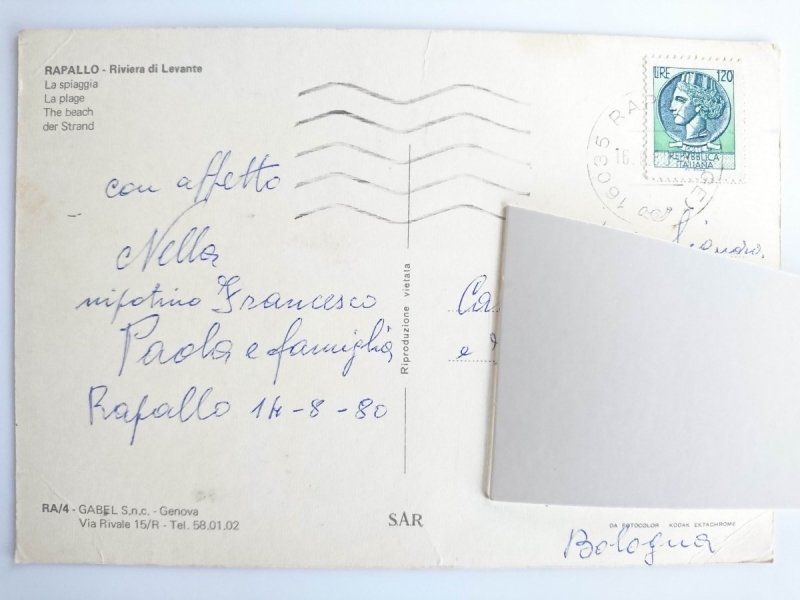 RAPALLO - Riviera di Levante
La spiaggia
La plage
The beach
der Strand
LIRE 120
REPVBBLICA
ITALIANA
16035 RAP
16.
GE
con affetto
Nella
nipotino Francesco
Paola e famiglia
Rapallo 14-8-80
Riproduzione vietata
e
RA/4 - GABEL S.n.c. - Genova
Via Rivale 15/R - Tel. 58.01.02
SAR
DA FOTOCOLOR KODAK EKTACHROME
Bologna